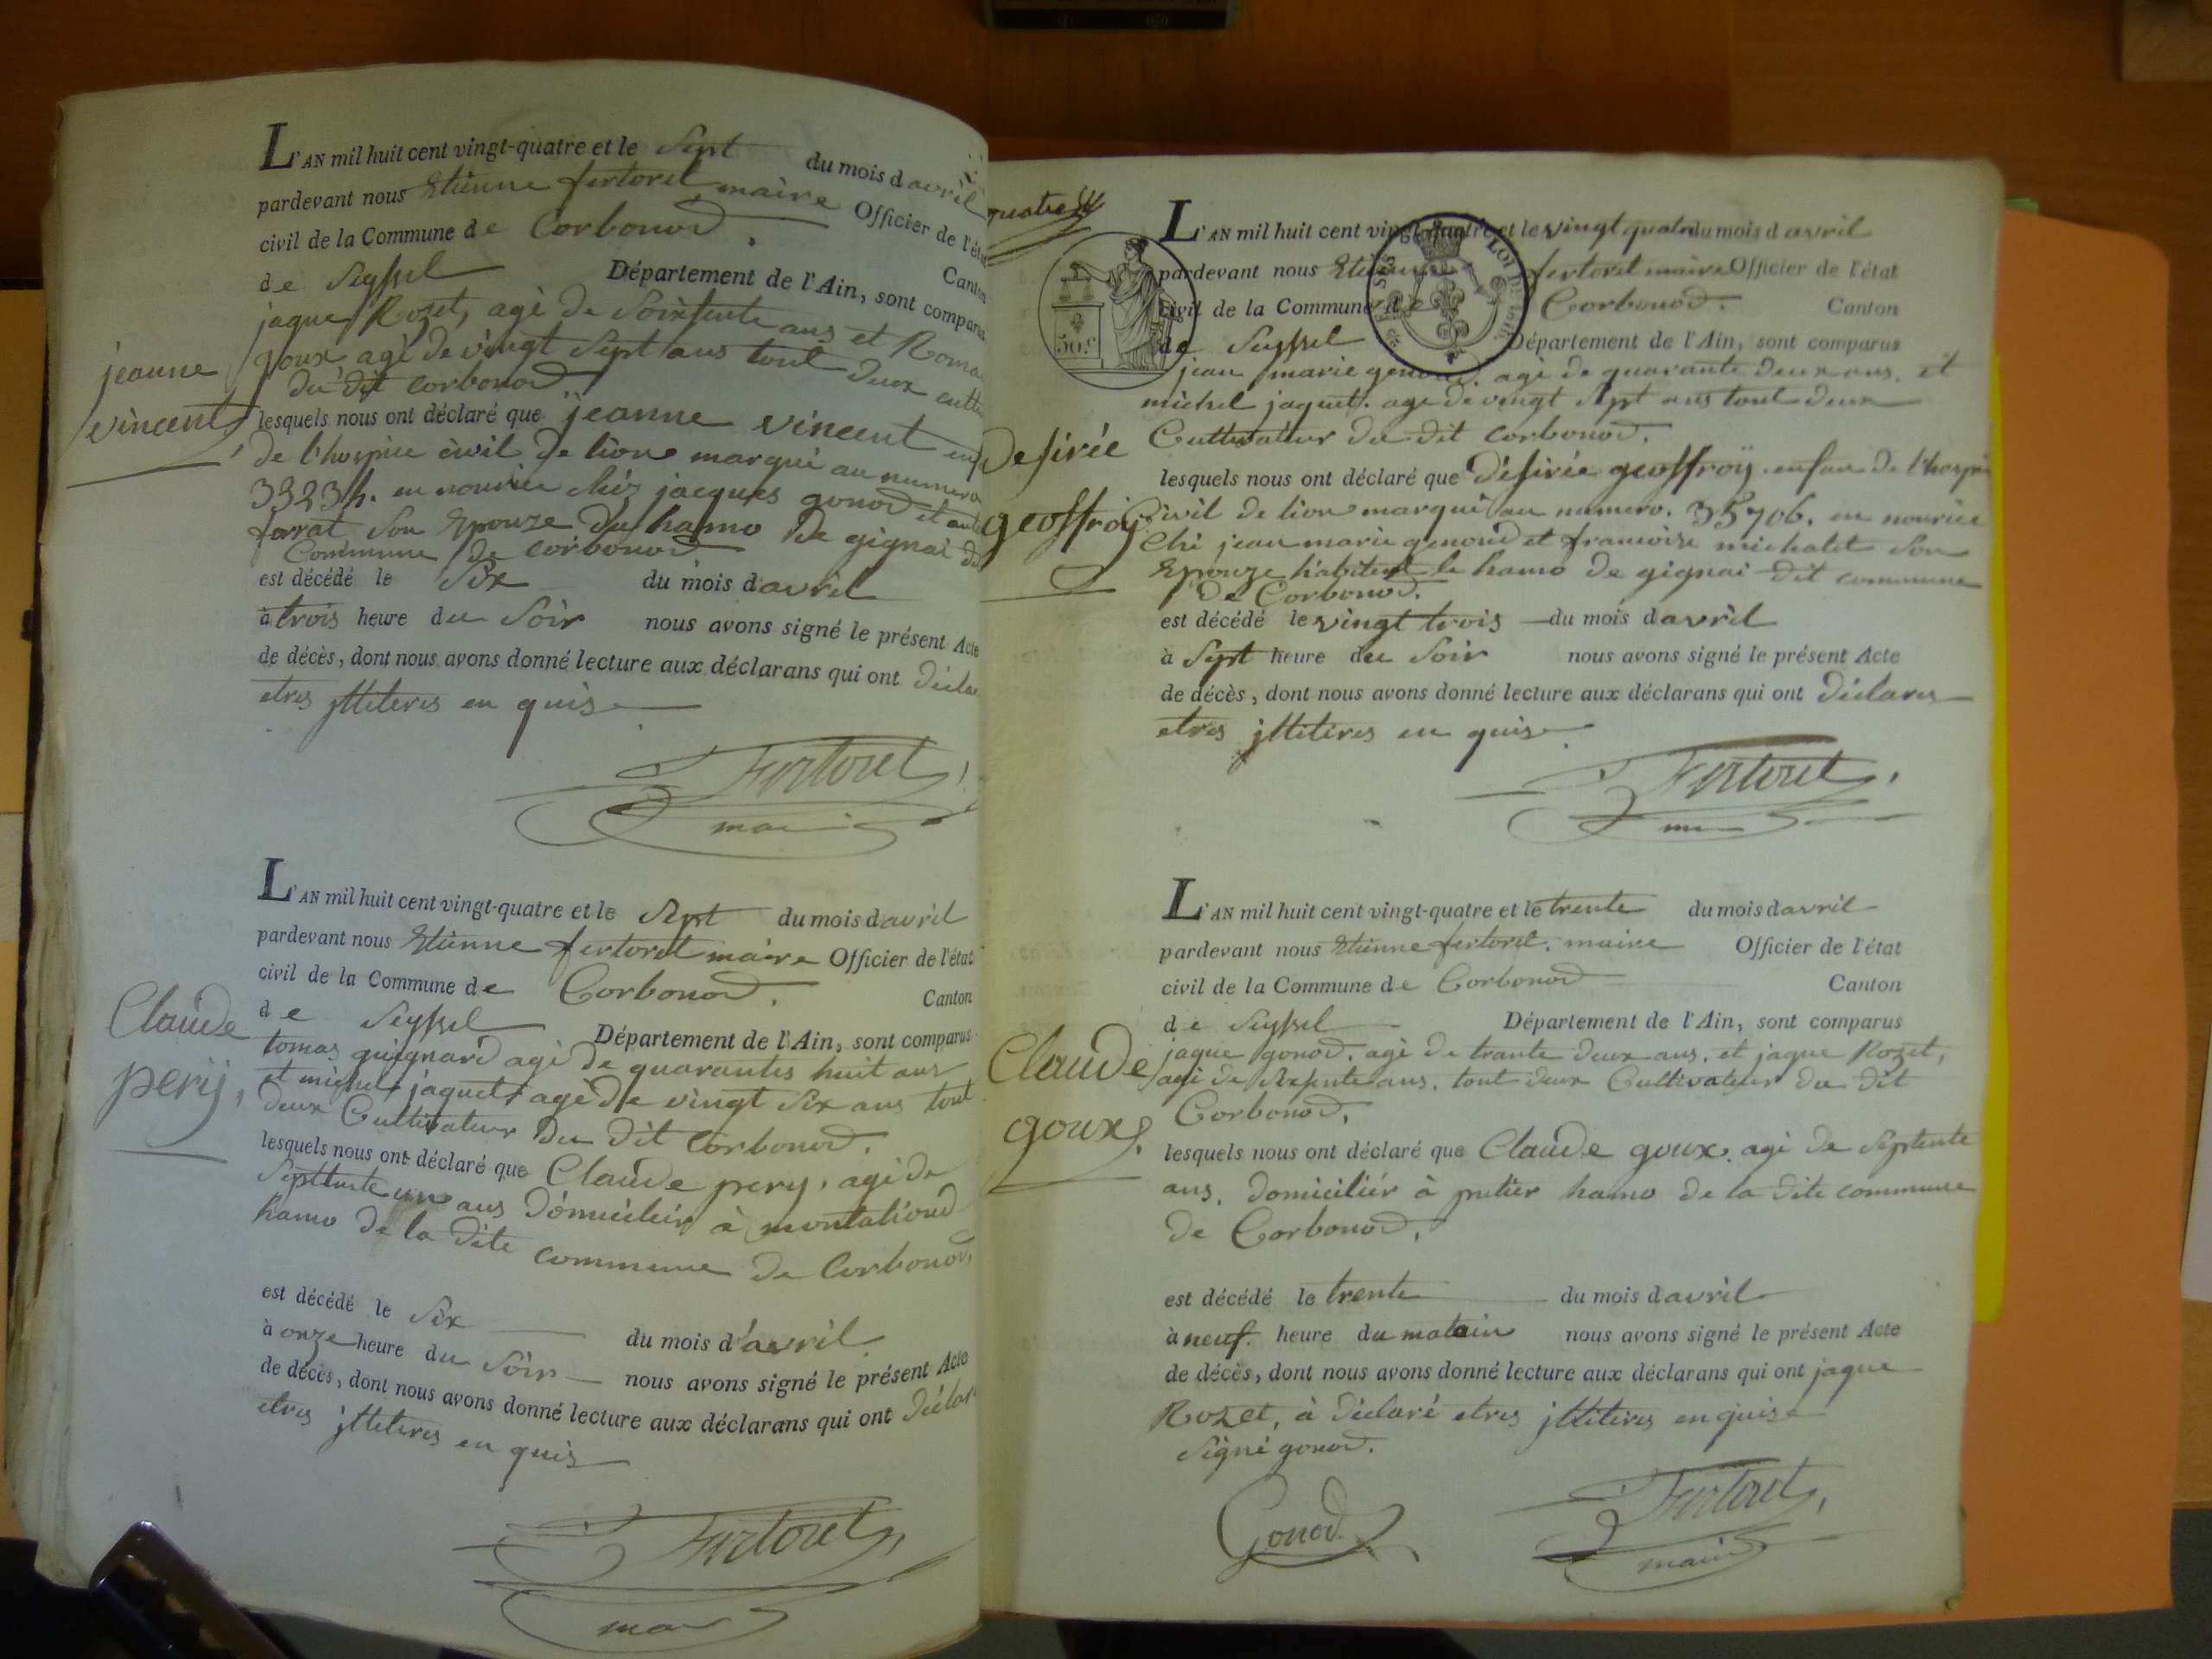 L'AN mil huit cent vingt-quatre et le Sept du mois d avril
pardevant nous Etienne fertoret maire Officier de l'état
civil de la Commune de Corbonod. Canton
de Seyssel Département de l'Ain, sont comparus
jaque Rozet, agé de Soixsente ans et Roma
goux agé de vingt Sept ans tout deux cultiv
du dit corbonod
jeanne
vincent,
lesquels nous ont déclaré que jeanne vincent enf
de l'hospice civil de lion marqué au numero
33234. en nourice chéz jacques gonod et
farrat Son Epouze du hamo de gignai du
Commune de corbonod
est décédé le Six du mois d avril
à trois heure du Soir nous avons signé le présent Acte
de décès, dont nous avons donné lecture aux déclarans qui ont déclar
etres jlliteres en quis
Fertoret,
maire
L'AN mil huit cent vingt-quatre et le Sept du mois d avril
pardevant nous Etienne fertoret maire Officier de l'état
civil de la Commune de Corbonod. Canton
de Seyssel Département de l'Ain, sont comparus
Claude
pery,
tomas guignard agé de quarantes huit ans
et michel jaquet agé de vingt Six ans tout
deux Cultivateur du dit Corbonod.
lesquels nous ont déclaré que Claude pery, agé de
Septtente un ans domiciliér à montatioud
hamo de la dite commune de Corbonod,
est décédé le Six du mois d'avril
à onze heure du Soir nous avons signé le présent Acte
de décès, dont nous avons donné lecture aux déclarans qui ont déclar
etres jlliteres en quis
Fertoret,
maire
quatre
L'AN mil huit cent vingt-quatre et le vingt quatre du mois d avril
pardevant nous Etienne fertoret maire Officier de l'état
civil de la Commune de Corbonod. Canton
de Seyssel Département de l'Ain, sont comparus
50.c
jean marie genoud. agé de quarante deux ans. et
michel jaquet. age de vingt Sept ans tout deux
Cultivateur du dit corbonod.
desirée
geoffroÿ
lesquels nous ont déclaré que desirée geoffroÿ. enfan de l'hospice
Civil de lion marqué au numero. 35706. en nourice
Ché jean marie genoud et francoise michalet Son
Epouze habitent le hamo de gignai dit commune
de Corbonod.
est décédé le vingt trois du mois d avril
à Sept heure du Soir nous avons signé le présent Acte
de décès, dont nous avons donné lecture aux déclarans qui ont déclares
etres jlliteres en quis
Fertoret,
L'AN mil huit cent vingt-quatre et le trente du mois d avril
pardevant nous Etienne fertoret. maire Officier de l'état
civil de la Commune de Corbonod Canton
de Seyssel Département de l'Ain, sont comparus
Claude
goux.
jaque gonod. agé de trante deux ans. et jaque Rozet,
agé de Soixsente ans. tout deux Cultivateur du dit
Corbonod,
lesquels nous ont déclaré que Claude goux. agé de Septente
ans. domiciliér à putier hamo de la dite commune
de Corbonod,
est décédé le trente du mois d avril
à neuf. heure du matain nous avons signé le présent Acte
de décès, dont nous avons donné lecture aux déclarans qui ont jaque
Rozet, à déclaré etres jlliteres enquis
Signé gonod.
Gonod
Fertoret,
maire